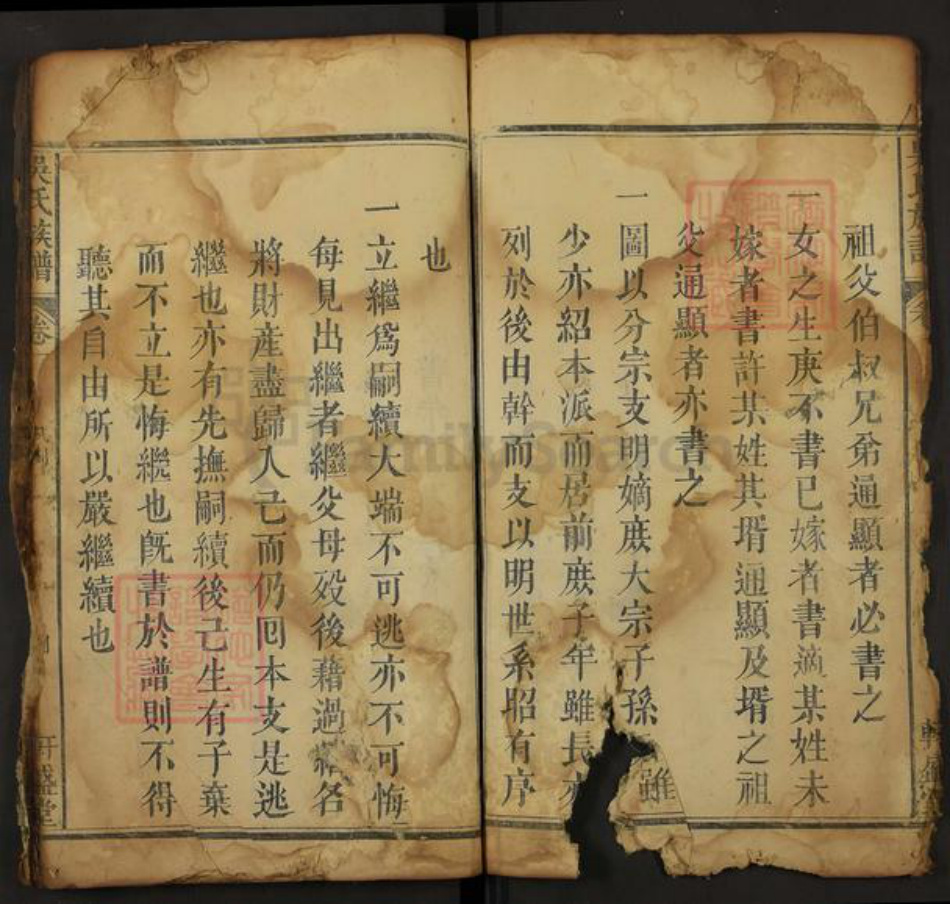 祖父伯叔兄弟通顯者必書之
一女之生庚不書已嫁者書適某姓未
嫁者書許某姓其壻通顯及壻之祖
父通顯者亦書之
一圖以分宗支明嫡庶大宗子孫雖
少亦紹本派而居前庶子年雖長亦
列於後由幹而支以明世系昭有序
也
一立繼爲嗣續大端不可逃亦不可悔
每見出繼者繼父母歿後藉過繼名
將財産盡歸入己而仍囘本支是逃
繼也亦有先撫嗣續後己生有子棄
而不立是悔繼也旣書於譜則不得
聽其自由所以嚴繼續也
吳氏族譜
卷
軒盛堂
FamilySearch